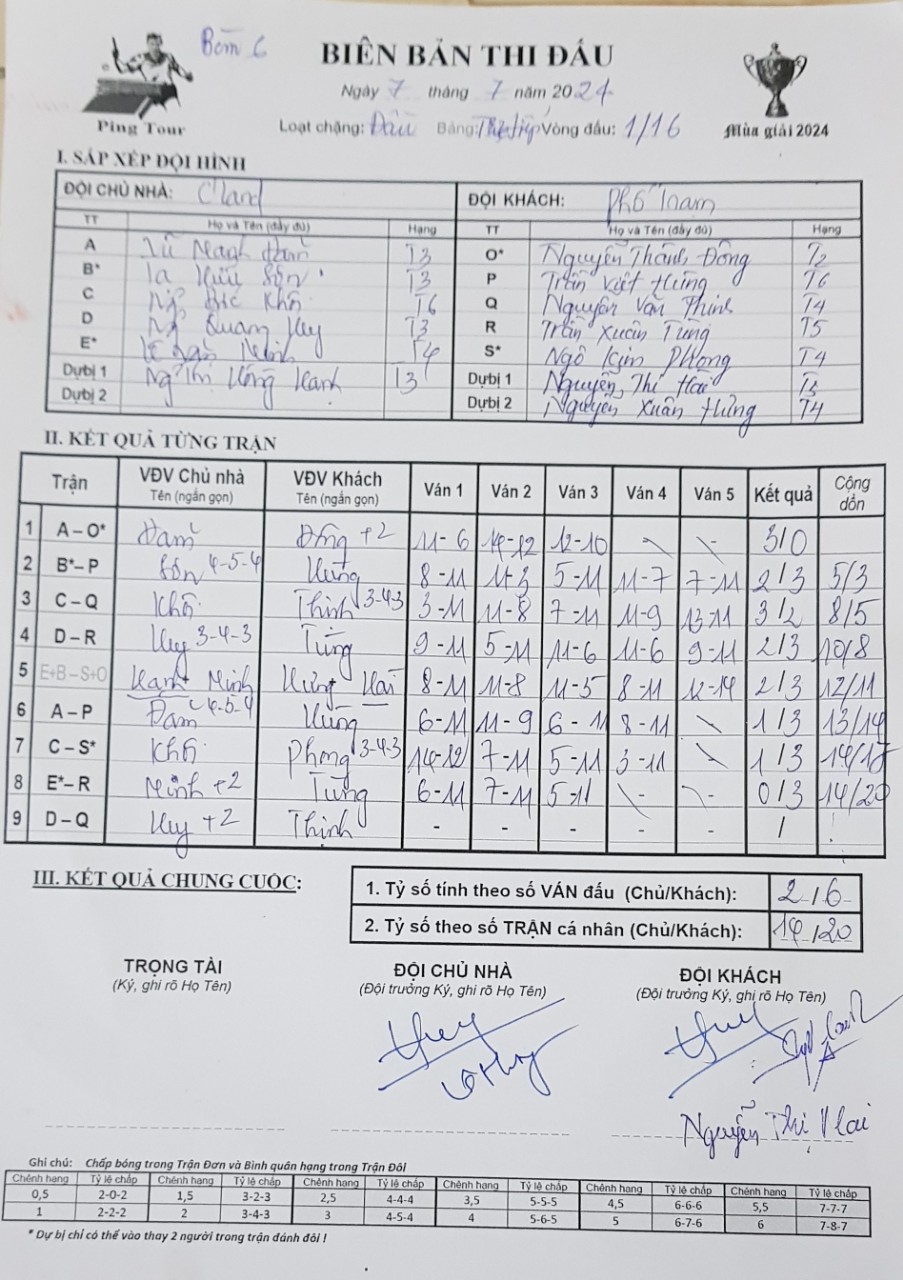 Bàn 6
BIÊN BẢN THI ĐẤU
Ngày 7 tháng 7 năm 2024
Ping Tour
Loạt chặng: Đấu Bảng: Vòng đấu: 1/16
Mùa giải 2024
I. SẮP XẾP ĐỘI HÌNH
ĐỘI CHỦ NHÀ: Cland ĐỘI KHÁCH: Phố Nam
TT Họ và Tên (đầy đủ) Hạng TT Họ và Tên (đầy đủ) Hạng
A Vũ Mạnh Đam T3 O* Nguyễn Thành Đông T2
B* Tạ Hữu Sơn T3 P Trần Việt Hưng T6
C Ng Khôi T6 Q Nguyễn Văn Thinh T4
D Ng Quang Huy T3 R Trần Xuân Tùng T5
E* Lê Minh T4 S* Ngô Kim Phong T4
Dự bị 1 Ng Thị Hồng Hạnh T3 Dự bị 1 Nguyễn Thị Hài
Dự bị 2 Dự bị 2 Nguyễn Xuân Hưng T4
II. KẾT QUẢ TỪNG TRẬN
Trận VĐV Chủ nhà Tên (ngắn gọn) VĐV Khách Tên (ngắn gọn) Ván 1 Ván 2 Ván 3 Ván 4 Ván 5 Kết quả Cộng dồn
1 A – O* Đam Đông +2 11-6 14-12 12-10 \ \- 3/0
2 B* – P Sơn 4-5-4 Hưng 8-11 11-3 5-11 11-7 7-11 2/3 5/3
3 C – Q Khôi Thinh 3-4-3 3-11 11-8 7-11 11-9 13-11 3/2 8/5
4 D – R Huy 3-4-3 Tùng 9-11 5-11 11-6 11-6 9-11 2/3 10/8
5 E+B – S+O Hạnh Minh Hưng Hài 8-11 11-8 11-5 8-11 12-14 2/3 12/11
6 A – P Đam 4-5-4 Hưng 6-11 11-9 6-11 8-11 \ 1/3 13/14
7 C – S* Khôi Phong 3-4-3 14-12 7-11 5-11 3-11 \ 1/3 14/17
8 E* – R Minh +2 Tùng 6-11 7-11 5-11 \- \- 0/3 14/20
9 D – Q Huy +2 Thinh - - - - - /
III. KẾT QUẢ CHUNG CUỘC:
1. Tỷ số tính theo số VÁN đấu (Chủ/Khách): 2/6
2. Tỷ số theo số TRẬN cá nhân (Chủ/Khách): 14/20
TRỌNG TÀI ĐỘI CHỦ NHÀ ĐỘI KHÁCH
(Ký, ghi rõ Họ Tên) (Đội trưởng Ký, ghi rõ Họ Tên) (Đội trưởng Ký, ghi rõ Họ Tên)
Huy Huy
Nguyễn Thị Hài
Ghi chú: Chấp bóng trong Trận Đơn và Bình quân hạng trong Trận Đôi
Chênh hạng Tỷ lệ chấp Chênh hạng Tỷ lệ chấp Chênh hạng Tỷ lệ chấp Chênh hạng Tỷ lệ chấp Chênh hạng Tỷ lệ chấp Chênh hạng Tỷ lệ chấp
0,5 2-0-2 1,5 3-2-3 2,5 4-4-4 3,5 5-5-5 4,5 6-6-6 5,5 7-7-7
1 2-2-2 2 3-4-3 3 4-5-4 4 5-6-5 5 6-7-6 6 7-8-7
* Dự bị chỉ có thể vào thay 2 người trong trận đánh đôi !